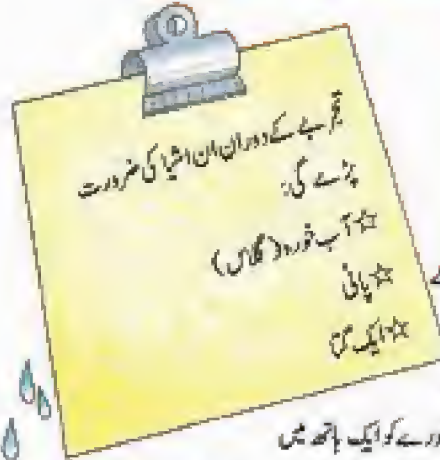 تجربے کے دوران ان اشیا کی ضرورت
پڑے گی:
☆ آب خورہ (گلاس)
☆ پانی
☆ ایک
کو ایک ہاتھ میں